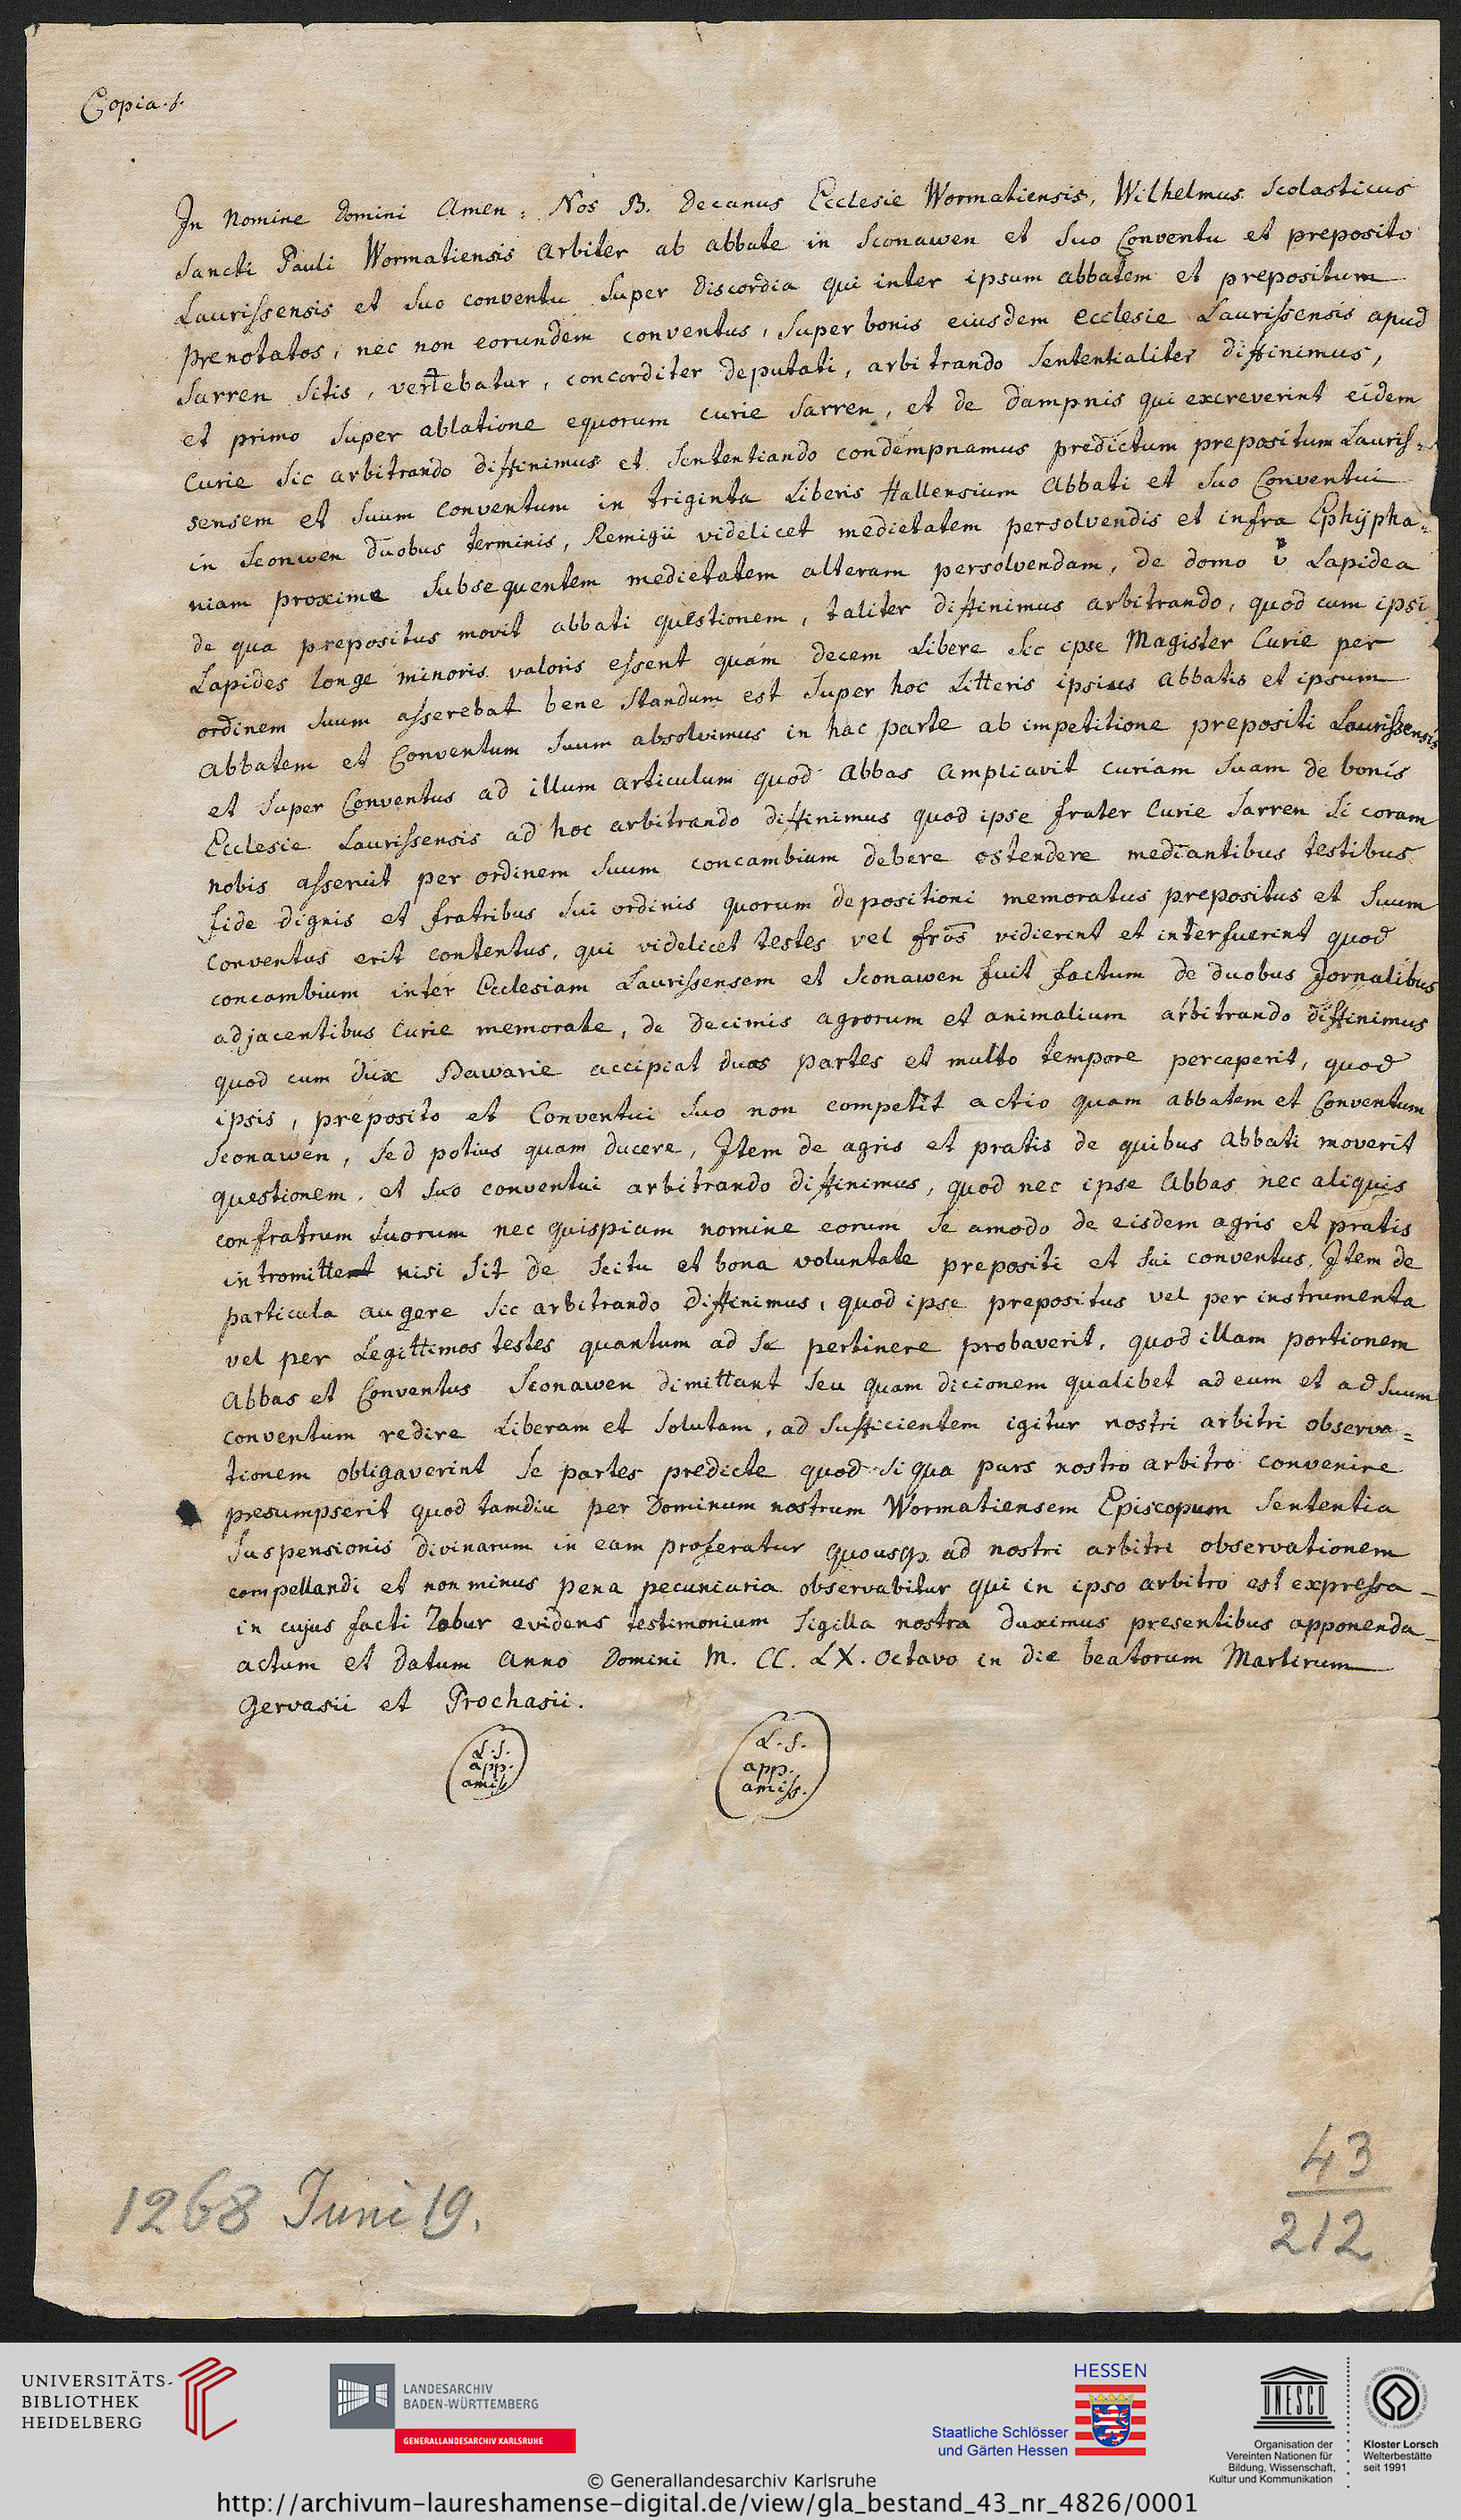 Copia.
In Nomine Domini Amen: Nos B. Decanus Ecclesie Wormatiensis, Wilhelmus Scolasticus
Sancti Pauli Wormatiensis Arbiter ab abbate in Sconawen et Suo Conventu et preposito
Laurissensis et Suo conventu Super Discordia qui inter ipsum abbatem et prepositum
prenotatos, nec non eorundem conventus, Super bonis eiusdem Ecclesie Laurissensis apud
Sarren Sitis, vertebatur, concorditer deputati, arbitrando Sententialiter diffinimus,
et primo Super ablatione equorum curie Sarren, et de dampnis qui excreverint eidem
Curie Sic arbitrando diffinimus et Sententiando condempnamus predictum prepositum Lauris=
sensem et Suum Conventum in triginta Liberis Hallensium Abbati et Suo Conventui
in Sconwen duobus terminis, Remigii videlicet medietatem persolvendis et infra Ephypha=
niam proxime Subsequentem medietatem alteram persolvendam, de domo Lapidea
de qua prepositus movit abbati questionem, taliter diffinimus arbitrando, quod cum ipsi
Lapides longe minoris valoris essent quam decem Libere Sic ipse Magister Curie per
ordinem Suum asserebat bene Standum est Super hoc Litteris ipsius abbatis et ipsum
Abbatem et Conventum Suum absolvimus in hac parte ab impetitione prepositi Laurissensis
et Super Conventus ad illum articulum quod Abbas Ampliavit curiam Suam de bonis
Ecclesie Laurissensis ad hoc arbitrando diffinimus quod ipse frater Curie Sarren Si coram
nobis asseruit per ordinem Suum concambium debere ostendere mediantibus testibus
fide dignis et fratribus Sui ordinis quorum depositioni memoratus prepositus et Suum
Conventus erit contentus, qui videlicet testes vel fros vidierint et interfuerint quod
concambium inter Ecclesiam Laurissensem et Sconawen fuit factum de duobus Jornalibus
adjacentibus Curie memorate, de Decimis agrorum et animalium arbitrando diffinimus
quod cum dux Bawarie accipiat duas partes et multo tempore perceperit, quod
ipsis, preposito et Conventui Suo non competit actio quam abbatem et Conventum
Sconawen, Sed potius quam ducere, Item de agris et pratis de quibus Abbati moverit
questionem, et Suo conventui arbitrando diffinimus, quod nec ipse Abbas nec aliquis
confratrum Suorum nec quispiam nomine eorum Se amodo de eisdem agris et pratis
intromittent nisi Sit de Scitu et bona voluntate prepositi et Sui conventus. Item de
particula augere Sic arbitrando diffinimus, quod ipse prepositus vel per instrumenta
vel per Legittimos testes quantum ad Se pertinere probaverit, quod illam portionem
Abbas et Conventus Sconawen dimittant Seu quam dicionem qualibet ad eum et ad Suum
conventum redire Liberam et Solutam, ad Sufficientem igitur nostri arbitri observa=
tionem obligaverint Se partes predicte quod Si qua pars nostro arbitro convenire
presumpserit quod tamdiu per Dominum nostrum Wormatiensem Episcopum Sententia
Suspensionis divinarum in eam proferatur quousqz ad nostri arbitri observationem
compellandi et non minus pena pecuniaria observabitur qui in ipso arbitro est expressa
in cujus facti Robur evidens testimonium Sigilla nostra duximus presentibus apponenda
actum et Datum Anno Domini M. CC. LX. octavo in die beatorum Martirum
Gervasii et Prochasii.
L.S. app. amiss
L.S. app. amiss.
1268 Juni 19.
43
212
UNIVERSITÄTS-
BIBLIOTHEK
HEIDELBERG
LANDESARCHIV
BADEN-WÜRTTEMBERG
GENERALLANDESARCHIV KARLSRUHE
HESSEN
Staatliche Schlösser
und Gärten Hessen
UNESCO
Organisation der
Vereinten Nationen für
Bildung, Wissenschaft,
Kultur und Kommunikation
Kloster Lorsch
Welterbestätte
seit 1991
© Generallandesarchiv Karlsruhe
http://archivum-laureshamense-digital.de/view/gla_bestand_43_nr_4826/0001